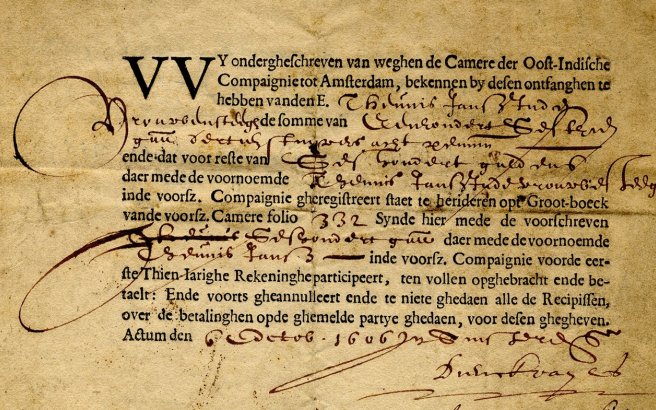 VVY ondergheschreven van weghen de Camere der Oost-Indische
Compaignie tot Amsterdam, bekennen by desen ontfanghen te
hebben vanden E. Theunis Jansz inde
de somme van Eenhondert
gul. dertich stuvers acht
ende dat voor reste van Ses hondert guldens
daer mede de voornoemde Theunis Jansz inde
inde voorsz. Compaignie gheregistreert staet te herideren opt Groot-boeck
vande voorsz. Camere folio 332 Synde hier mede de voorschreven
Seshondert gul daer mede de voornoemde
Theunis Jansz inde voorsz. Compaignie voorde eer-
ste Thien-Iarighe Rekeninghe participeert, ten vollen opghebracht ende be-
taelt: Ende voorts gheannulleert ende te niete ghedaen alle de Recipissen,
over de betalinghen opde ghemelde partye ghedaen, voor desen ghegheven.
Actum den 6 Octob. 1606